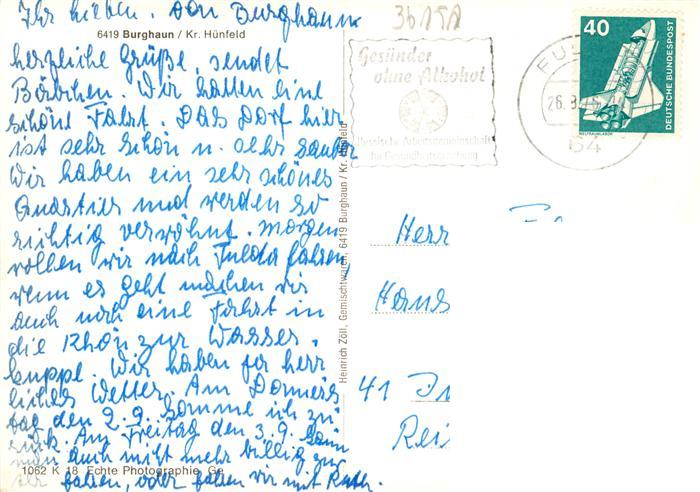 Ihr lieben. Von Burghaun
6419 Burghaun / Kr. Hünfeld
herzliche Grüße, sendet
Bärbchen. Wir hatten eine
schöne Fahrt. Das Dorf hier
ist sehr schön u. sehr sauber
Wir haben ein sehr schönes
Quartier und werden so
richtig verwöhnt. Morgen
wollen wir nach Fulda fahren,
wenn es geht machen wir
auch noch eine Fahrt in
die Rhön zur Wasser-
kuppe. Wir haben ja herr
liches Wetter. Am Donners
tag den 2.9. komme ich zu
rück. Am Freitag den 3.9. kann
man auch nicht mehr billig zu
fahren, oder fahren wir mit Ruth.
1062 K 18 Echte Photographie Ge
Heinrich Zöll, Gemischtwaren, 6419 Burghaun / Kr. Hünfeld
Gesünder
ohne Alkohol
Hessische Arbeitsgemeinschaft
für Gesundheitserziehung
FUL
26.8.
64
40
DEUTSCHE BUNDESPOST
WELTRAUMLABOR
Herr
Hans
41
Rei